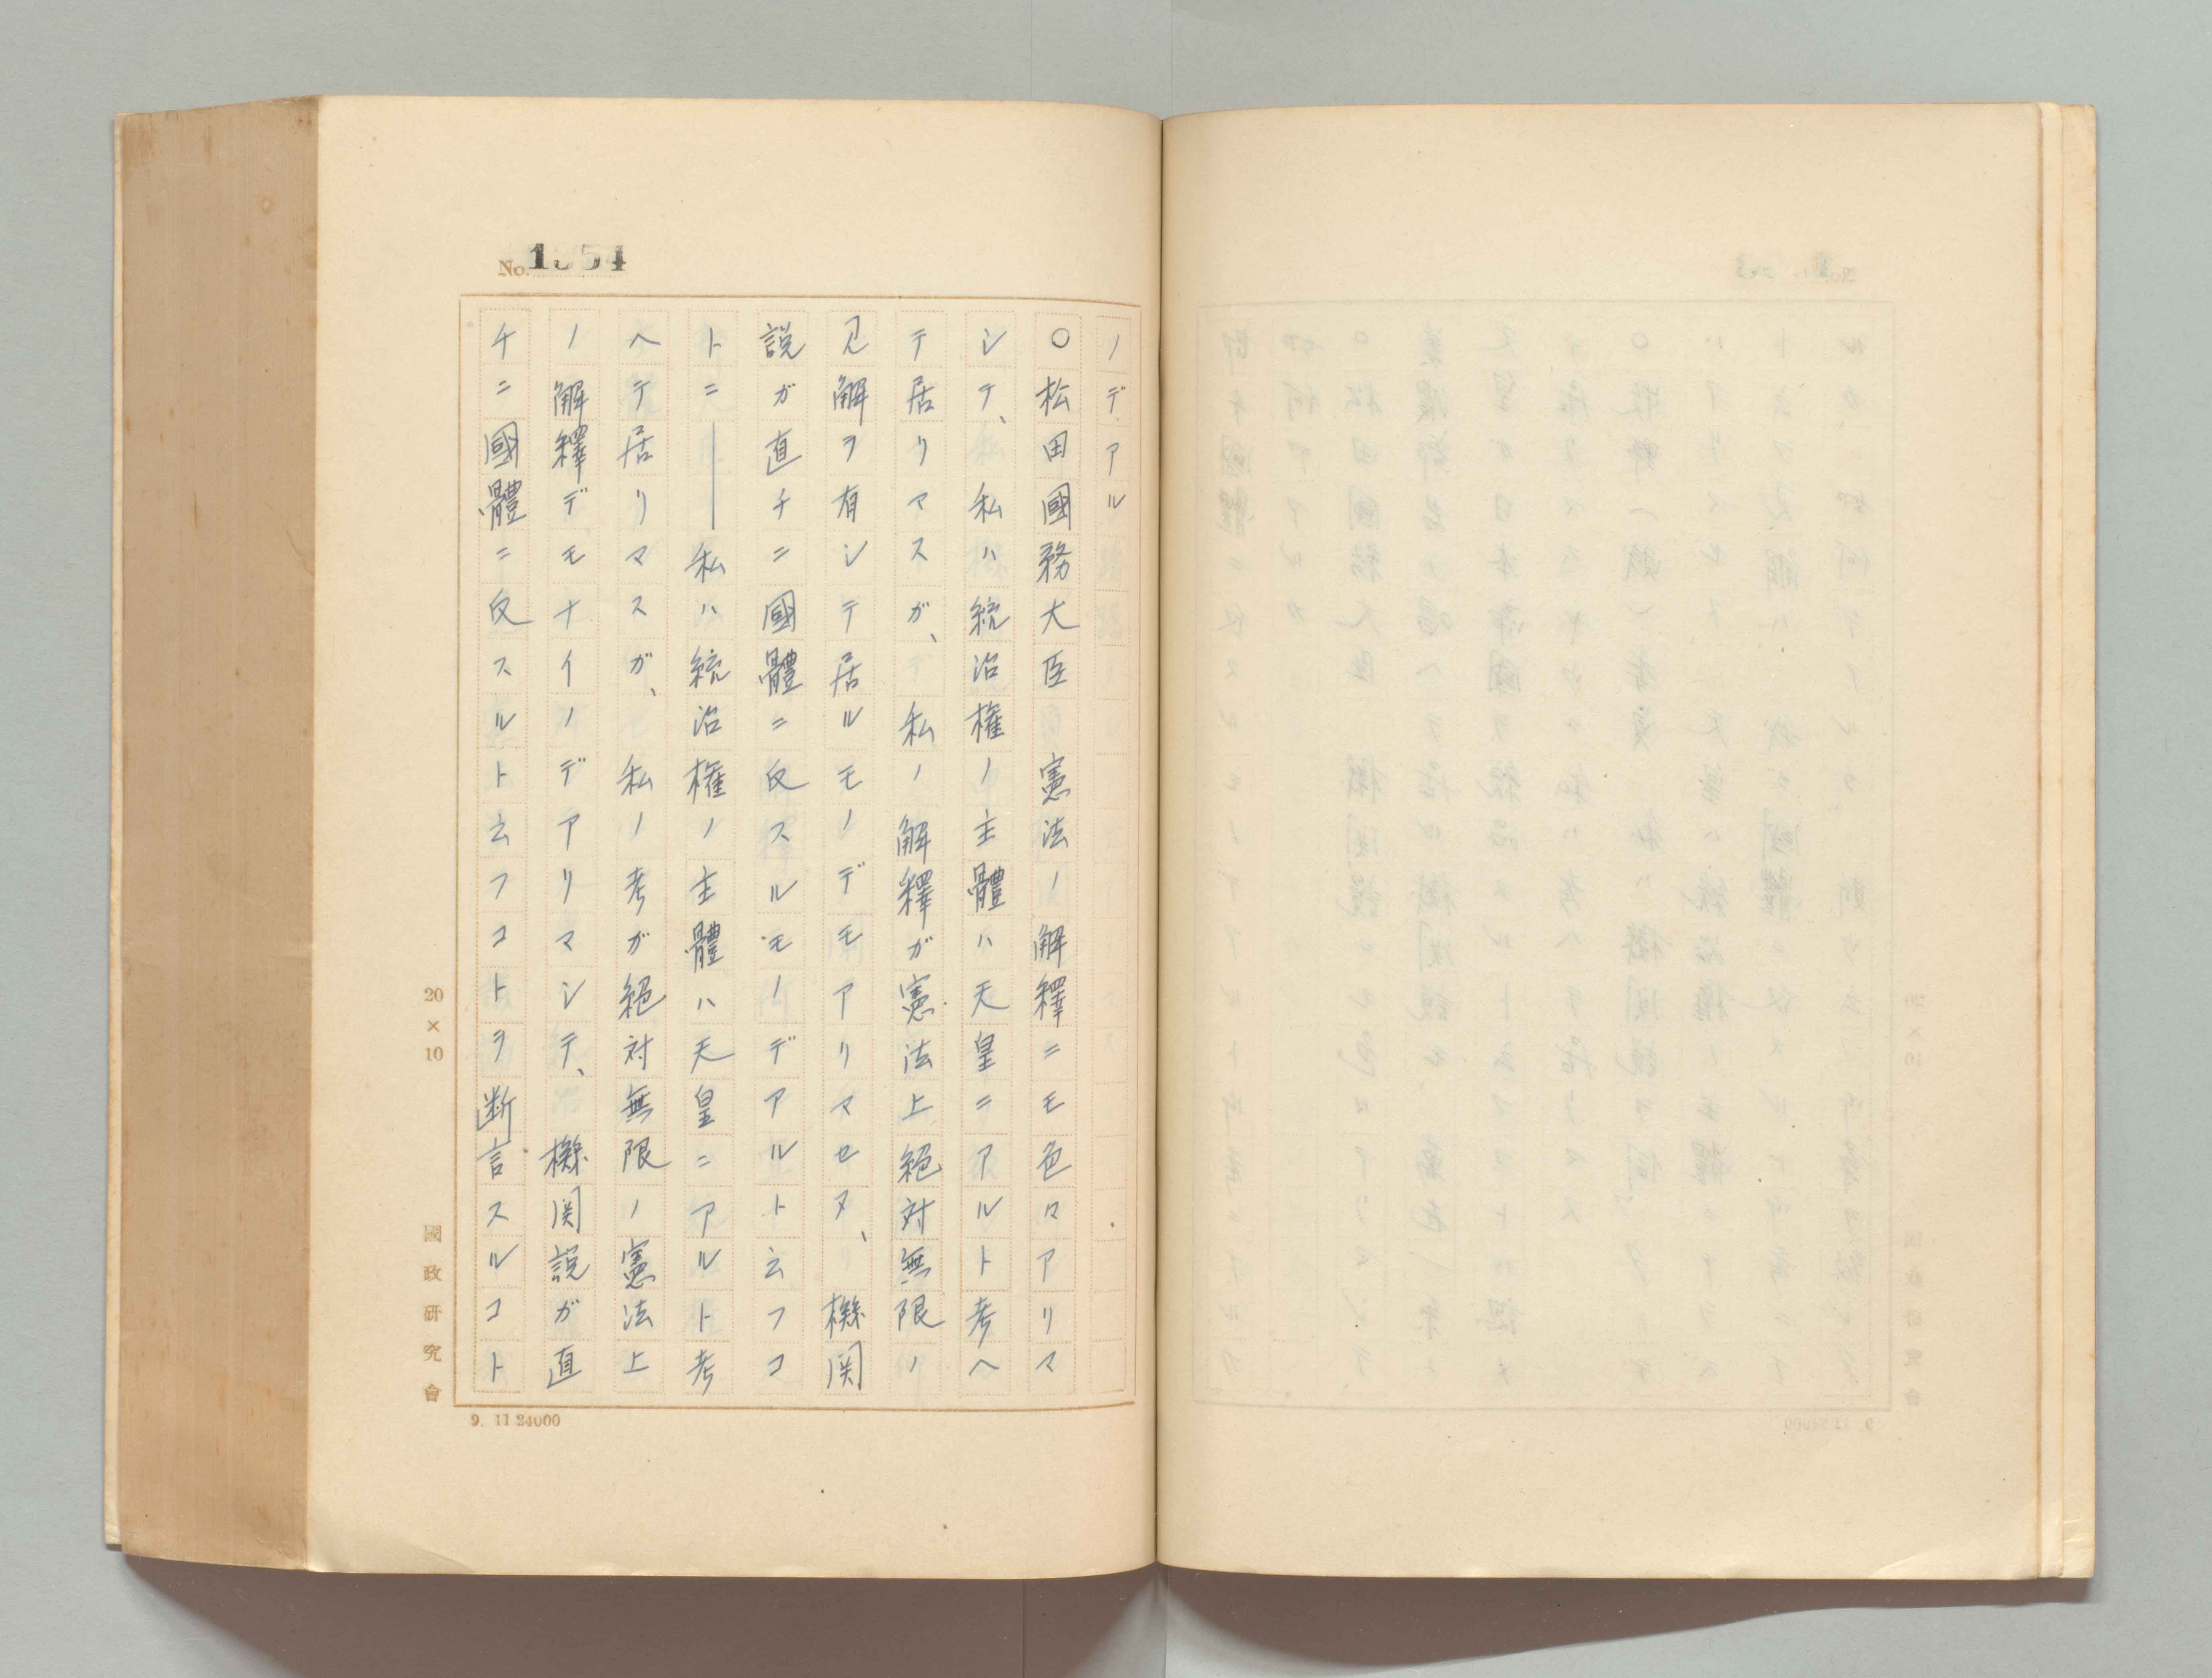 No. 1354
ノデアル
○松田國務大臣　憲法ノ解釋ニモ色々アリマ
シテ、私ハ統治權ノ主體ハ天皇ニアルト考ヘ
テ居リマスガ、私ノ解釋ガ憲法上絕対無限ノ
見解ヲ有シテ居ルモノデモアリマセヌ、機関
説ガ直チニ國體ニ反スルモノデアルト云フコ
トニ――私ハ統治權ノ主體ハ天皇ニアルト考
ヘテ居リマスガ、私ノ考ガ絕対無限ノ憲法上
ノ解釋デモナイノデアリマシテ、機関説ガ直
チニ國體ニ反スルト云フコトヲ断言スルコト
20×10
國政研究會
9. 11 24000